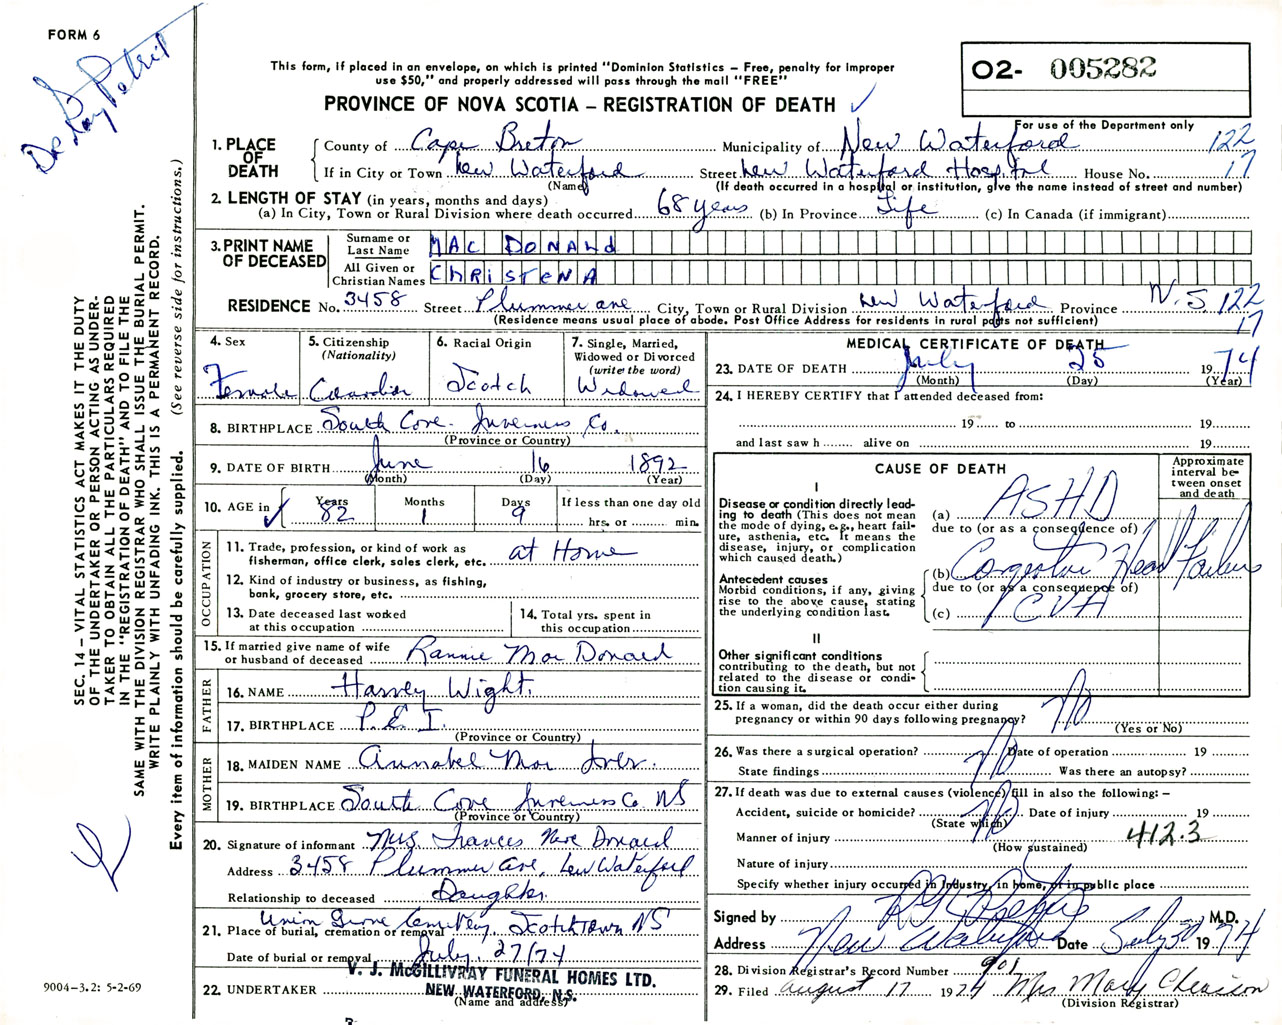 FORM 6
This form, if placed in an envelope, on which is printed "Dominion Statistics - Free, penalty for improper
use $50," and properly addressed will pass through the mail "FREE"
PROVINCE OF NOVA SCOTIA - REGISTRATION OF DEATH ✓
O2- 005282
For use of the Department only
122
17
1. PLACE OF DEATH
County of Cape Breton Municipality of New Waterford
If in City or Town New Waterford Street New Waterford Hospital House No.
(Name) (If death occurred in a hospital or institution, give the name instead of street and number)
2. LENGTH OF STAY (in years, months and days)
(a) In City, Town or Rural Division where death occurred 68 years (b) In Province Life (c) In Canada (if immigrant)
3. PRINT NAME OF DECEASED
Surname or Last Name MAC DONALD
All Given or Christian Names CHRISTENA
RESIDENCE No. 3458 Street Plummer ave City, Town or Rural Division New Waterford Province N.S 122
17
(Residence means usual place of abode. Post Office Address for residents in rural parts not sufficient)
4. Sex Female
5. Citizenship (Nationality) Canadian
6. Racial Origin Scotch
7. Single, Married, Widowed or Divorced (write the word) Widowed
8. BIRTHPLACE South Cove Inverness Co.
(Province or Country)
9. DATE OF BIRTH June 16 1892
(Month) (Day) (Year)
10. AGE in ✓ Years 82 Months 1 Days 9 If less than one day old
hrs. or min.
OCCUPATION
11. Trade, profession, or kind of work as
fisherman, office clerk, sales clerk, etc. at Home
12. Kind of industry or business, as fishing,
bank, grocery store, etc.
13. Date deceased last worked
at this occupation
14. Total yrs. spent in
this occupation
15. If married give name of wife
or husband of deceased Rannie Mac Donald
FATHER
16. NAME Harvey Wight.
17. BIRTHPLACE P.E.I.
(Province or Country)
MOTHER
18. MAIDEN NAME Annabel Mac Iver.
19. BIRTHPLACE South Cove Inverness Co. NS
(Province or Country)
20. Signature of informant Mrs. Frances Mac Donald
Address 3458 Plummer Ave, New Waterford
Relationship to deceased Daughter.
21. Place of burial, cremation or removal Union Grove Cemetery, Scotchtown NS
Date of burial or removal July 27/74
22. UNDERTAKER V. J. McGILLIVRAY FUNERAL HOMES LTD.
NEW WATERFORD, N.S.
(Name and address)
MEDICAL CERTIFICATE OF DEATH
23. DATE OF DEATH July 25 1974
(Month) (Day) (Year)
24. I HEREBY CERTIFY that I attended deceased from:
19 to 19
and last saw h alive on 19
CAUSE OF DEATH
Approximate interval between onset and death
I
Disease or condition directly lead-
ing to death (This does not mean
the mode of dying, e.g., heart fail-
ure, asthenia, etc. It means the
disease, injury, or complication
which caused death.)
(a) ASHD
due to (or as a consequence of)
Antecedent causes
Morbid conditions, if any, giving
rise to the above cause, stating
the underlying condition last.
(b) Congestive Heart Failure
due to (or as a consequence of)
(c) CVA
II
Other significant conditions
contributing to the death, but not
related to the disease or condi-
tion causing it.
25. If a woman, did the death occur either during
pregnancy or within 90 days following pregnancy? No
(Yes or No)
26. Was there a surgical operation? No Date of operation 19
State findings Was there an autopsy?
27. If death was due to external causes (violence) fill in also the following: -
Accident, suicide or homicide? No Date of injury 19
(State which)
Manner of injury 412.3
(How sustained)
Nature of injury
Specify whether injury occurred in Industry, in home, or in public place
Signed by M.D.
Address New Waterford Date July 30 1974
28. Division Registrar's Record Number 901
29. Filed August 17 1974 Mrs Mary
(Division Registrar)
SEC. 14 - VITAL STATISTICS ACT MAKES IT THE DUTY
OF THE UNDERTAKER OR PERSON ACTING AS UNDER-
TAKER TO OBTAIN ALL THE PARTICULARS REQUIRED
IN THE "REGISTRATION OF DEATH" AND TO FILE THE
SAME WITH THE DIVISION REGISTRAR WHO SHALL ISSUE THE BURIAL PERMIT.
WRITE PLAINLY WITH UNFADING INK. THIS IS A PERMANENT RECORD.
Every item of information should be carefully supplied. (See reverse side for instructions.)
9004-3.2: 5-2-69